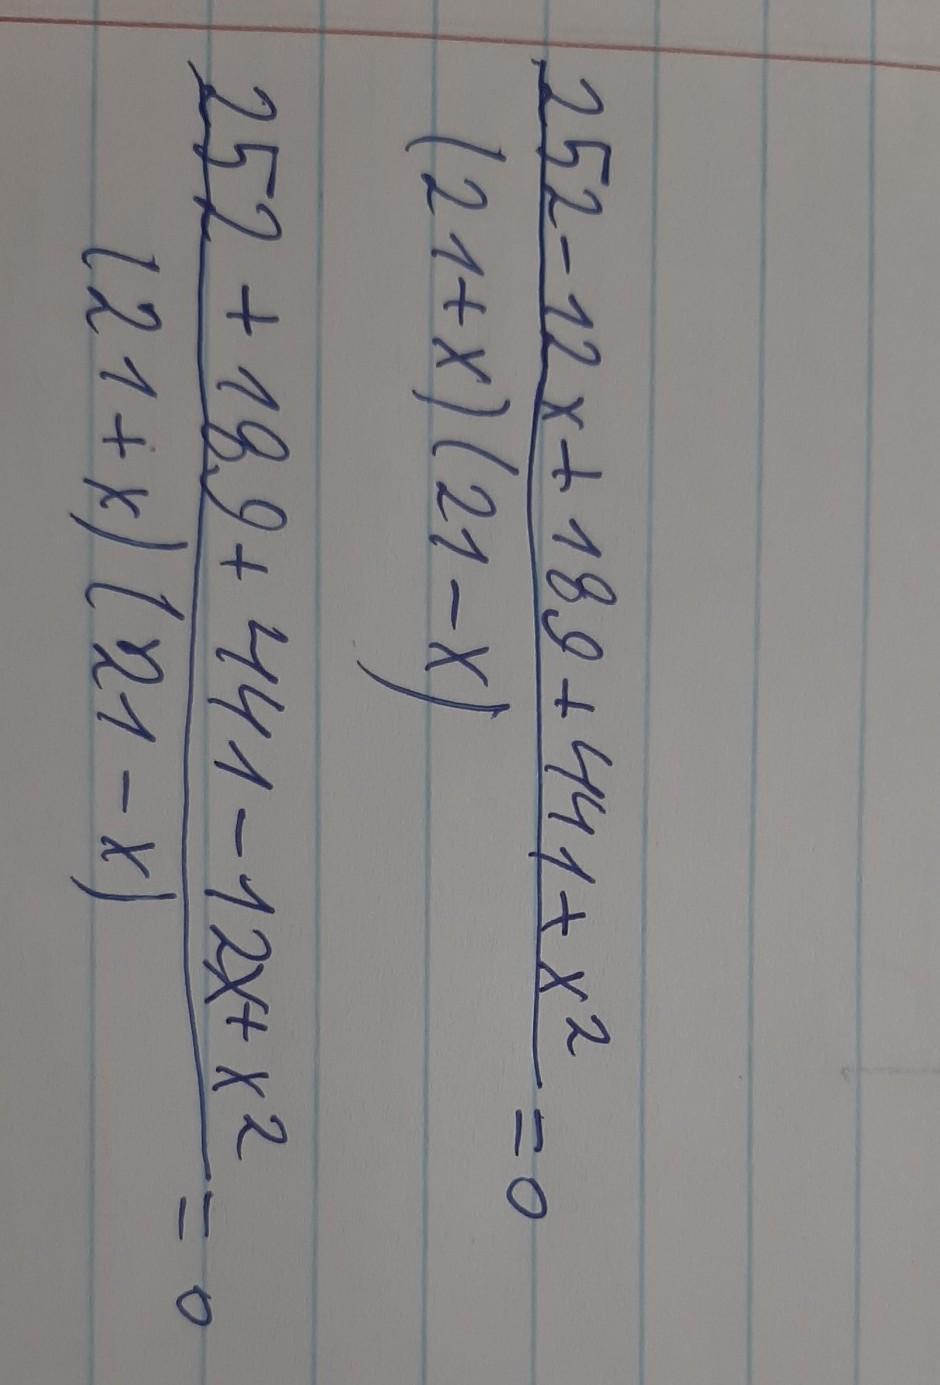 252-12x+189+441+x²
= 0
(21+x)(21-x)
252+189+441-12x+x²
= 0
(21+x)(21-x)